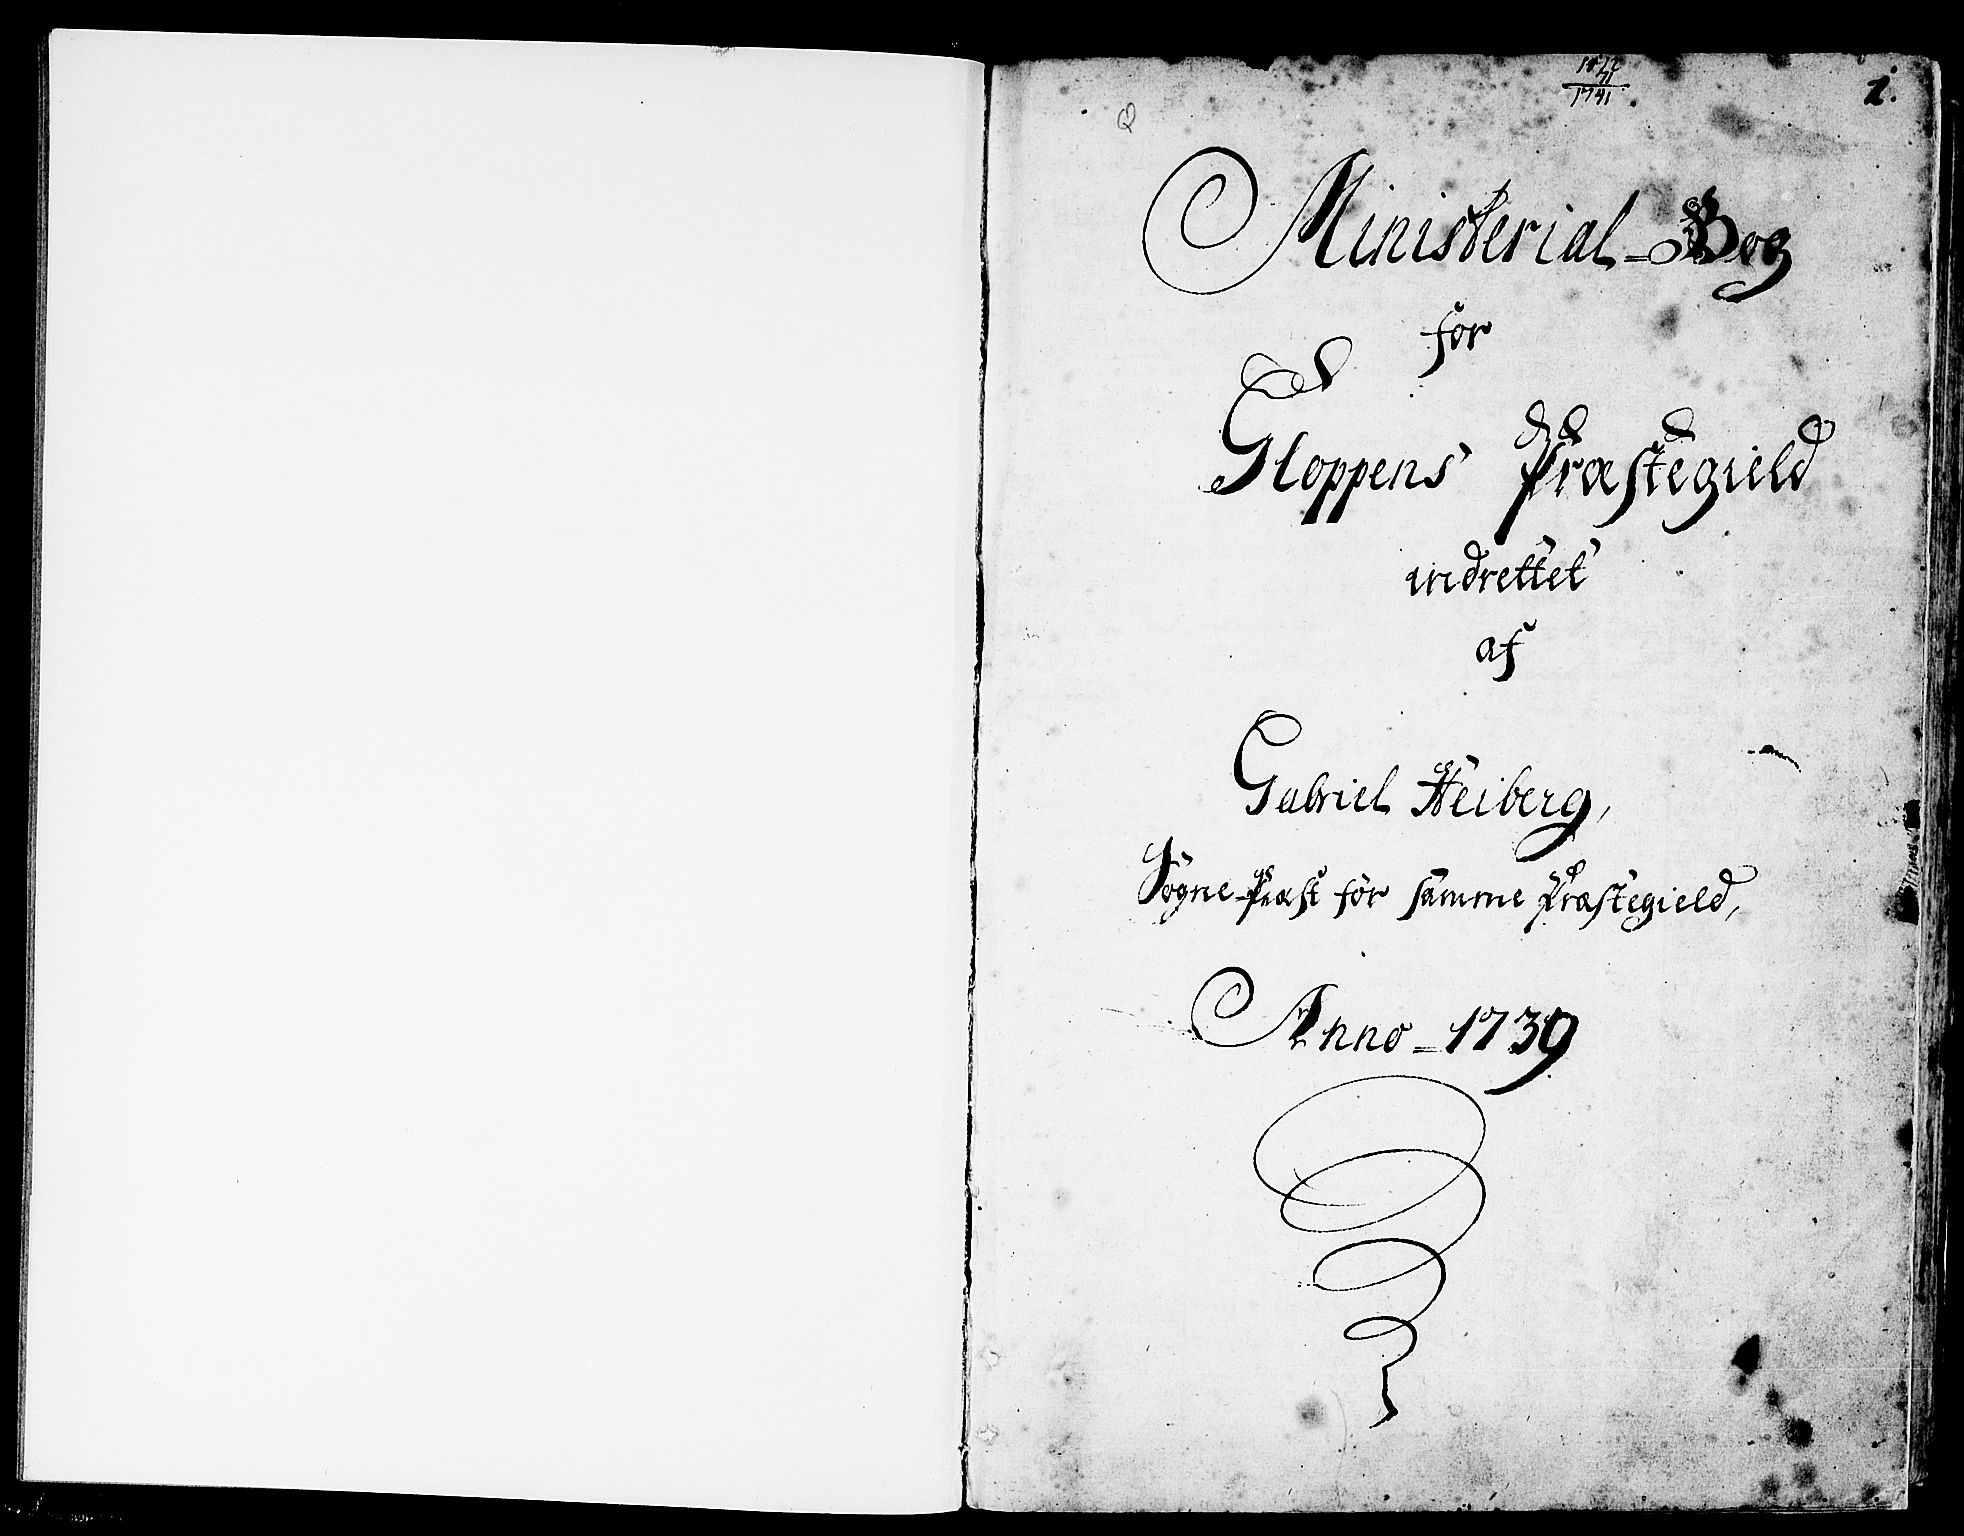 1812
71
1741
1.
Ministerial-Bog
for
Gloppens Præstegield
indrettet
af
Gabriel Heiberg,
Sogne-Præst for samme Præstegield,
Anno-1739